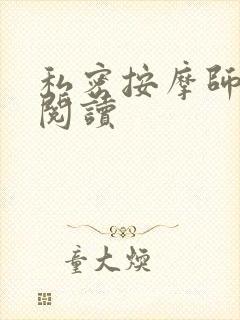 私密按摩師
閱讀
童大煥